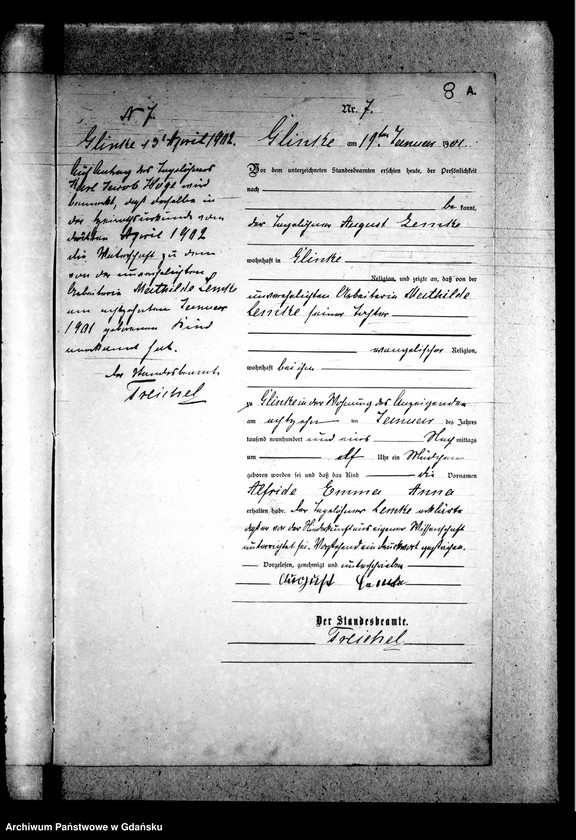 8 A.
N 7.
Glinke 3t April 1902.
Auf Antrag des Tagelöhners
Karl Jacob wird
bemerkt, daß derselbe in
der vom
dritten April 1902
die Vaterschaft zu dem
von der unverehelichten
Arbeiterin Mathilde Lemke
am achtzehnten Januar
1901 geborenen Kind
anerkannt hat.
Der Standesbeamte.
Treichel
Nr. 7.
Glinke am 19ten Januar 1901.
Vor dem unterzeichneten Standesbeamten erschien heute, der Persönlichkeit
nach
be kannt,
der Tagelöhner August Lemke
wohnhaft in Glinke
Religion, und zeigte an, daß von der
unverehelichten Arbeiterin Mathilde
Lemke seiner Tochter
evangelischer Religion,
wohnhaft bei ihm
zu Glinke in der Wohnung des Anzeigenden
am achtzehn ten Januar des Jahres
tausend neunhundert und eins Nach mittags
um elf Uhr ein Mädchen
geboren worden sei und daß das Kind die Vornamen
Alfride Emma Anna
erhalten habe. Der Tagelöhner Lemke erklärte
daß er von der Niederkunft aus eigener Wissenschaft
unterrichtet sei. Vorstehend ein Druckwort gestrichen.
Vorgelesen, genehmigt und unterschrieben
August Lemke
Der Standesbeamte.
Treichel
Archiwum Państwowe w Gdańsku